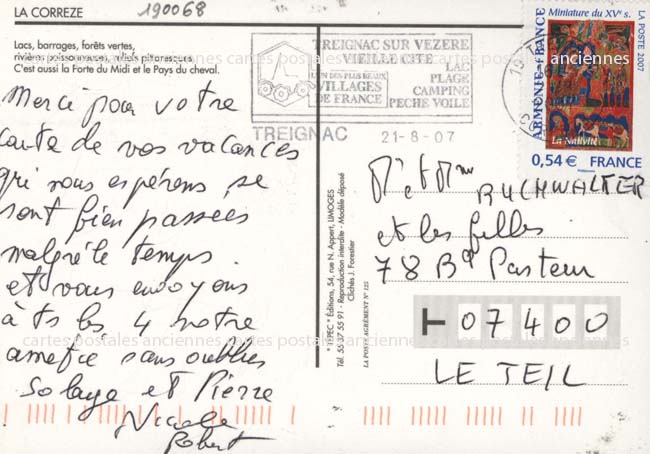 LA CORREZE
190068
Lacs, barrages, forêts vertes,
rivières poissonneuses, vallées pittoresques.
C'est aussi la Porte du Midi et le Pays du cheval.
TREIGNAC SUR VEZERE
VIEILLE CITE
L'UN DES PLUS BEAUX
VILLAGES
DE FRANCE
LAC
PLAGE
CAMPING
PECHE VOILE
TREIGNAC
21-8-07
Miniature du XVe s.
LA POSTE 2007
ARMÉNIE-FRANCE
La Nativité
0,54 € FRANCE
Merci pour votre
carte de vos vacances
qui nous espérons, se
sont bien passées
malgré le temps.
et vous envoyons
à ts les 4 notre
amitié sans oublier
Solange et Pierre
Nicole
Robert
"TEPEC" Editions, 54, rue N. Appert, LIMOGES
Tél. 55 37 55 91 - Reproduction interdite - Modèle déposé
Clichés J. Forestier
LA POSTE AGRÉMENT N° 125
Mr et Mme BUCHWALTER
et les filles
78 Bd Pasteur
07400
LE TEIL
cartes postales anciennes cartes postales anciennes